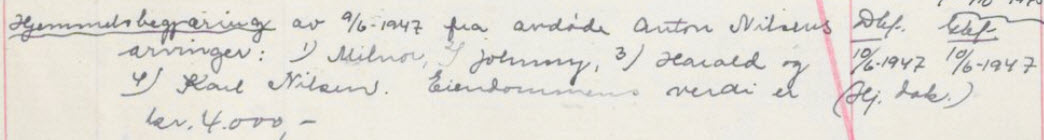 Hjemmelsbegjæring av 9/6-1947 fra avdøde Anton Nilsens Dbf. Gbf.
arvinger: 1) Milnor, 2) Johnny, 3) Harald og 10/6-1947 10/6-1947
4) Karl Nilsen. Eiendommens verdi er (Hj. dok.)
kr. 4.000,-